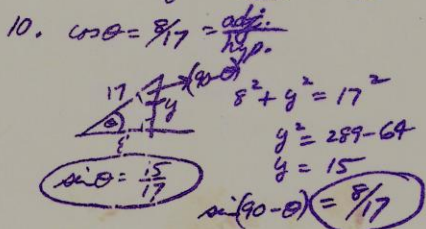 10. cosθ = 8/17 = adj./hyp.
17 (90-θ)
θ y
8
8² + y² = 17²
y² = 289-64
y = 15
sinθ = 15/17
sin(90-θ) = 8/17